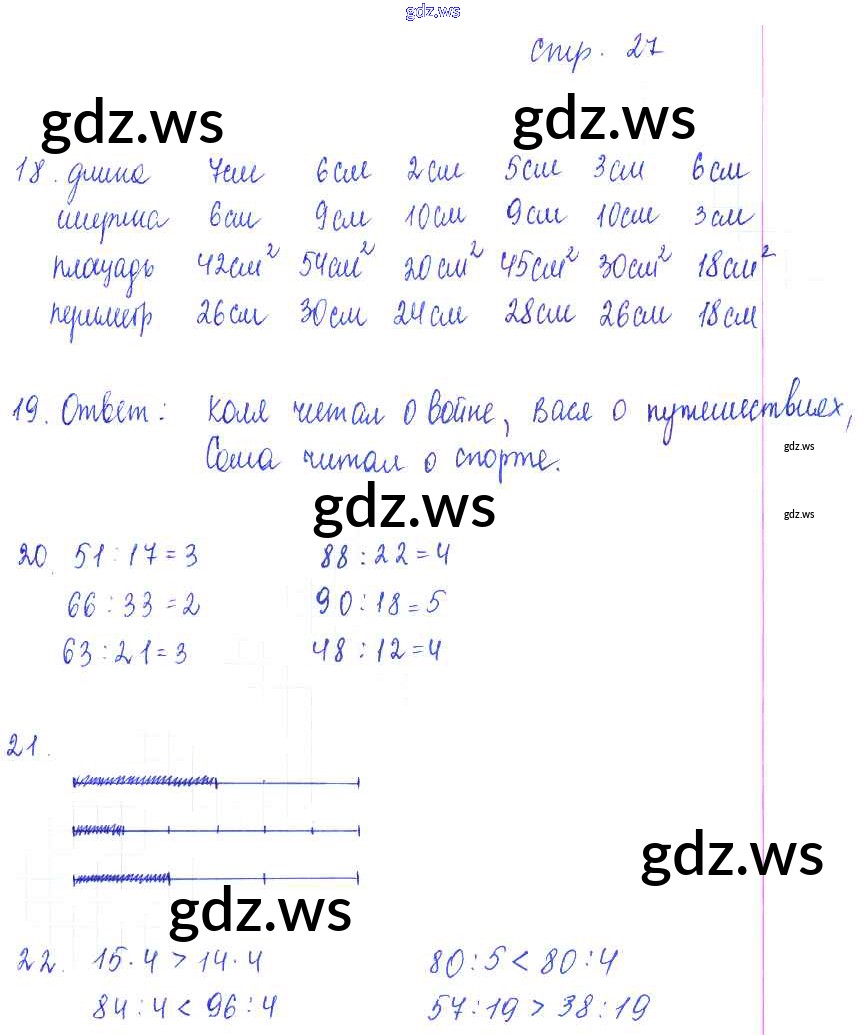 gdz.ws
стр. 27
gdz.ws gdz.ws
18. длина 7см 6см 2см 5см 3см 6см
ширина 6см 9см 10см 9см 10см 3см
площадь 42см² 54см² 20см² 45см² 30см² 18см²
периметр 26см 30см 24см 28см 26см 18см
19. Ответ: Коля читал о войне, Вася о путешествиях,
Саша читал о спорте.
gdz.ws
gdz.ws
gdz.ws
20. 51 : 17 = 3 88 : 22 = 4
66 : 33 = 2 90 : 18 = 5
63 : 21 = 3 48 : 12 = 4
21.
gdz.ws
gdz.ws
22. 15 · 4 > 14 · 4 80 : 5 < 80 : 4
84 : 4 < 96 : 4 57 : 19 > 38 : 19